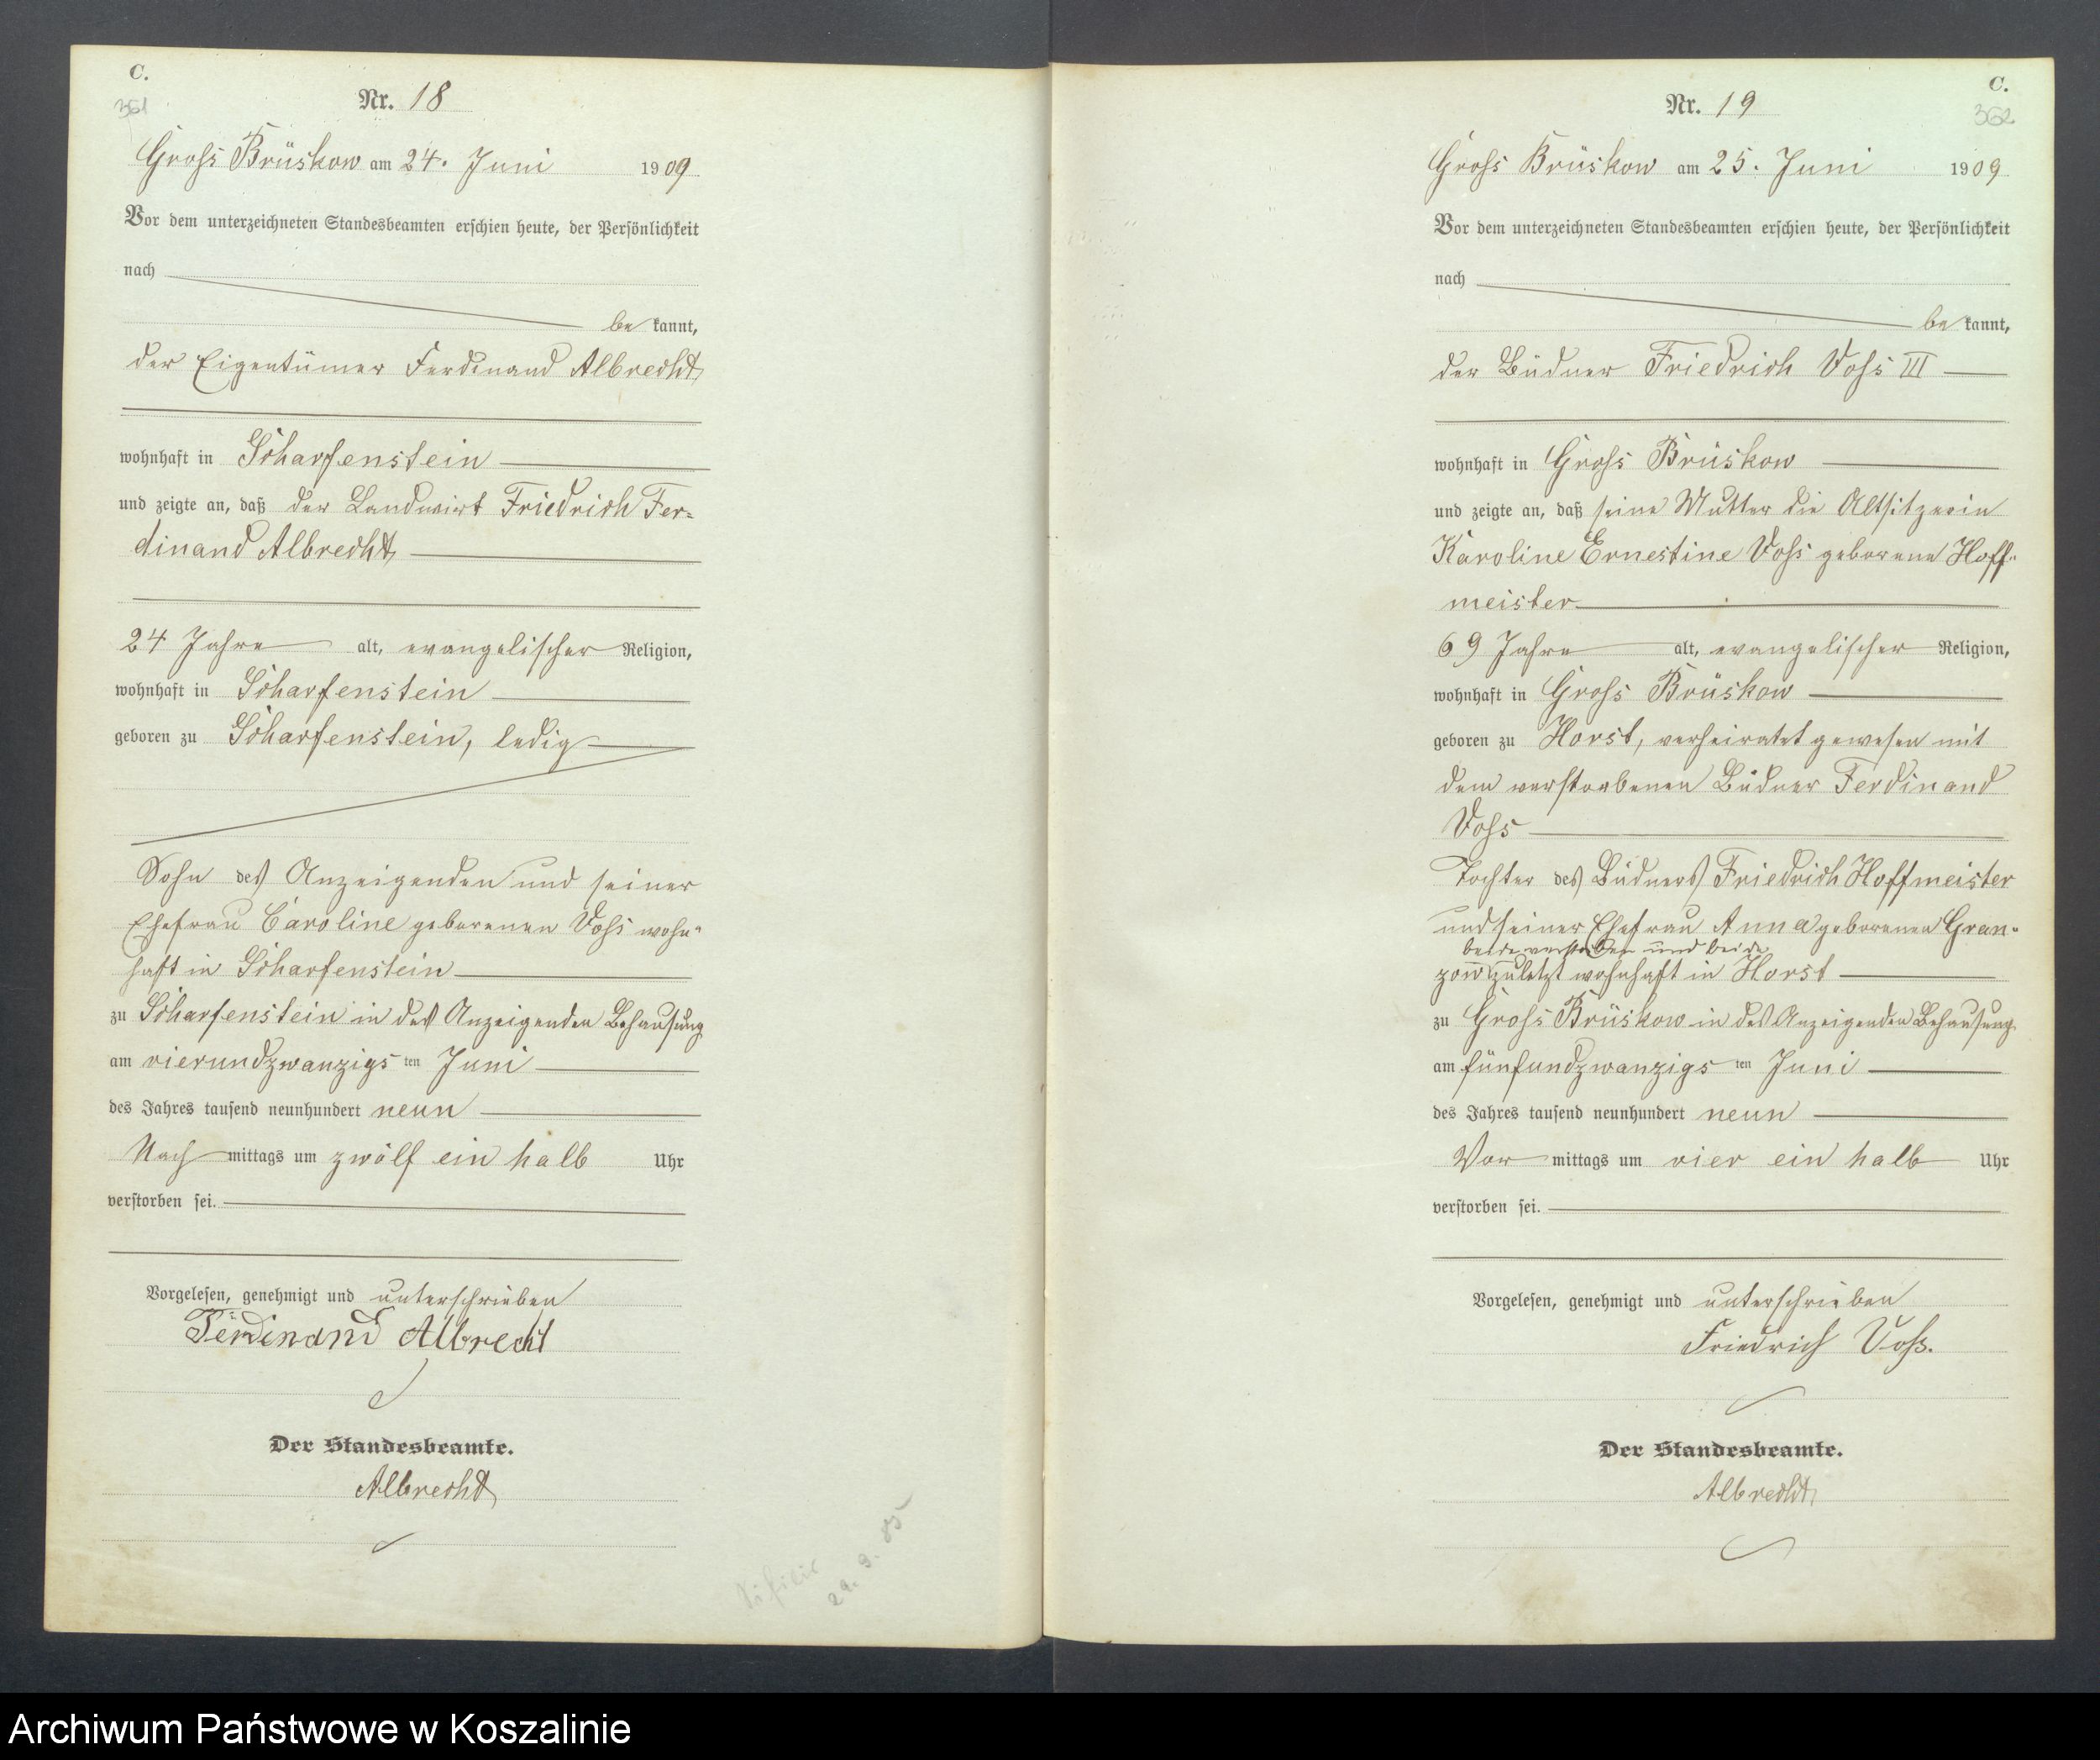 C.
361
Nr. 18
Gross Brüskow am 24. Juni 1909
Vor dem unterzeichneten Standesbeamten erschien heute, der Persönlichkeit
nach
be kannt,
der Eigentümer Ferdinand Albrecht
wohnhaft in Scharfenstein
und zeigte an, daß der Landwirt Friedrich Fer=
dinand Albrecht
24 Jahre alt, evangelischer Religion,
wohnhaft in Scharfenstein
geboren zu Scharfenstein, ledig
Sohn des Anzeigenden und seiner
Ehefrau Caroline geborenen Voss wohn-
haft in Scharfenstein
zu Scharfenstein in des Anzeigenden Behausung
am vierundzwanzigs ten Juni
des Jahres tausend neunhundert neun
Nach mittags um zwölf ein halb Uhr
verstorben sei.
Vorgelesen, genehmigt und unterschrieben
Ferdinand Albrecht
Der Standesbeamte.
Albrecht
29. 9. 85
C.
362
Nr. 19
Gross Brüskow am 25. Juni 1909
Vor dem unterzeichneten Standesbeamten erschien heute, der Persönlichkeit
nach
be kannt,
der Büdner Friedrich Voss III
wohnhaft in Gross Brüskow
und zeigte an, daß seine Mutter die Altsitzerin
Karoline Ernestine Voss geborene Hoff-
meister
69 Jahre alt, evangelischer Religion,
wohnhaft in Gross Brüskow
geboren zu Horst, verheiratet gewesen mit
dem verstorbenen Büdner Ferdinand
Voss
Tochter des Büdners Friedrich Hoffmeister
und seiner Ehefrau Anna geborenen Gran-
beide verstorben und beide
zow zuletzt wohnhaft in Horst
zu Gross Brüskow in des Anzeigenden Behausung
am fünfundzwanzigs ten Juni
des Jahres tausend neunhundert neun
Vor mittags um vier ein halb Uhr
verstorben sei.
Vorgelesen, genehmigt und unterschrieben
Friedrich Voss.
Der Standesbeamte.
Albrecht
Archiwum Państwowe w Koszalinie